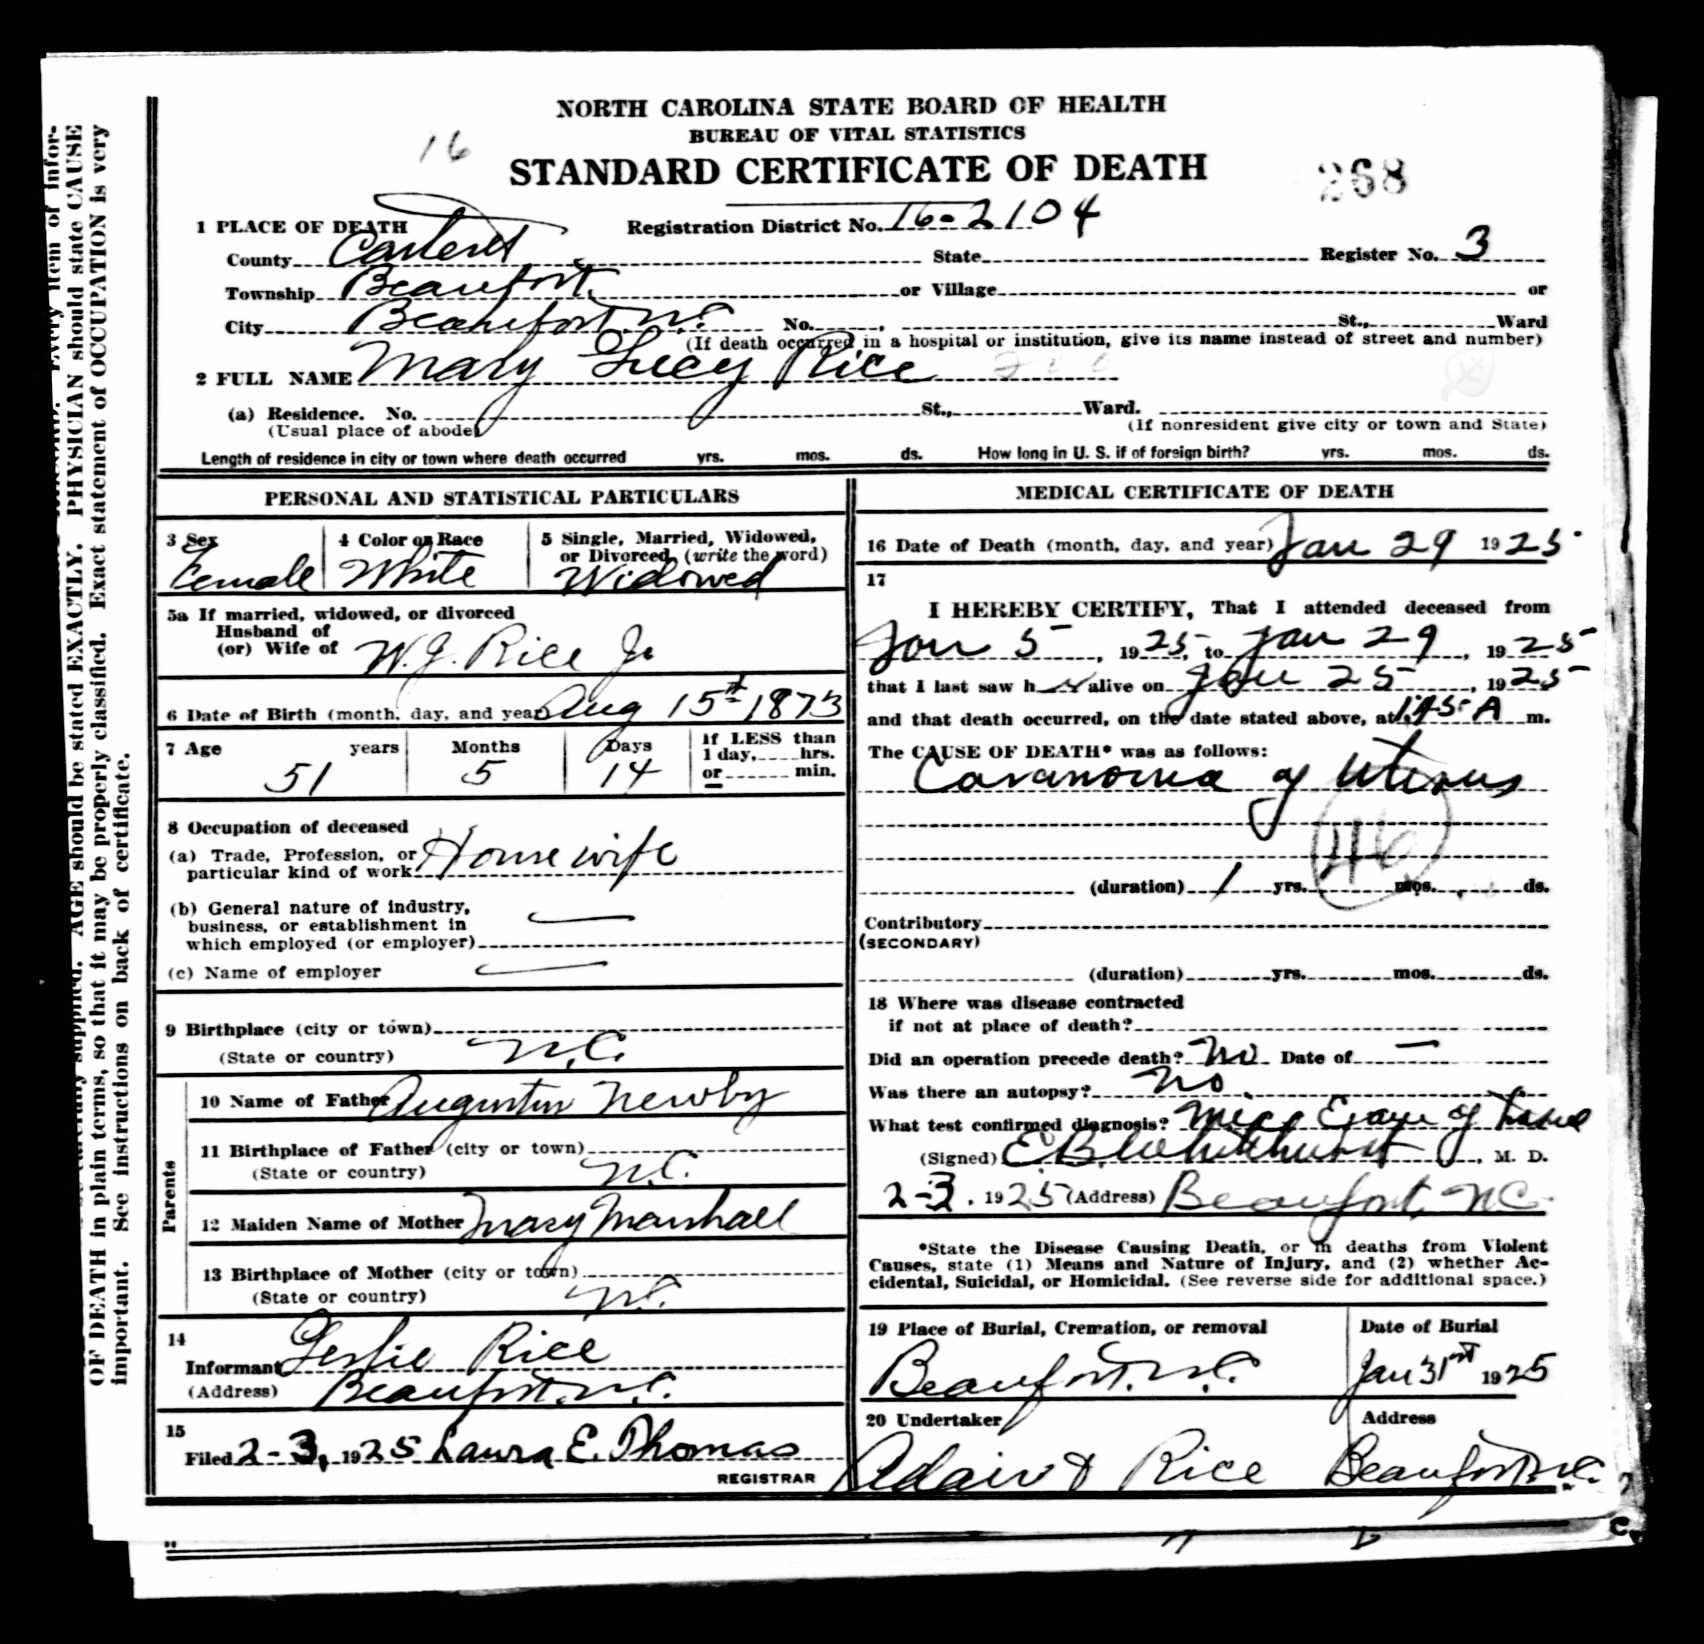 NORTH CAROLINA STATE BOARD OF HEALTH
BUREAU OF VITAL STATISTICS
16
STANDARD CERTIFICATE OF DEATH
268
1 PLACE OF DEATH
Registration District No. 16-2104
County Carteret State Register No. 3
Township Beaufort. or Village or
City Beaufort N.C. No. , St., Ward
(If death occurred in a hospital or institution, give its name instead of street and number)
2 FULL NAME Mary Lucy Rice
(a) Residence. No. St., Ward.
(Usual place of abode) (If nonresident give city or town and State)
Length of residence in city or town where death occurred yrs. mos. ds. How long in U. S. if of foreign birth? yrs. mos. ds.
PERSONAL AND STATISTICAL PARTICULARS
3 Sex 4 Color or Race 5 Single, Married, Widowed,
or Divorced, (write the word)
Female White Widowed
5a If married, widowed, or divorced
Husband of
(or) Wife of W.J. Rice Jr
6 Date of Birth (month, day, and year) Aug 15th 1873
7 Age years Months Days If LESS than
1 day, hrs.
or min.
51 5 14
8 Occupation of deceased
(a) Trade, Profession, or
particular kind of work Housewife
(b) General nature of industry,
business, or establishment in
which employed (or employer) —
(c) Name of employer —
9 Birthplace (city or town)
(State or country) N.C.
Parents
10 Name of Father Augustus Newby
11 Birthplace of Father (city or town)
(State or country) N.C.
12 Maiden Name of Mother Mary Marshall
13 Birthplace of Mother (city or town)
(State or country) N.C.
14
Informant Leslie Rice
(Address) Beaufort N.C.
15
Filed 2-3, 1925 Laura E. Thomas
REGISTRAR
MEDICAL CERTIFICATE OF DEATH
16 Date of Death (month, day, and year) Jan 29 1925
17
I HEREBY CERTIFY, That I attended deceased from
Jan 5, 1925, to Jan 29, 1925
that I last saw h er alive on Jan 25, 1925
and that death occurred, on the date stated above, at A m.
The CAUSE OF DEATH* was as follows:
Caranoma of Uterus
46
(duration) 1 yrs. mos. ds.
Contributory
(SECONDARY)
(duration) yrs. mos. ds.
18 Where was disease contracted
if not at place of death?
Did an operation precede death? No Date of —
Was there an autopsy? No.
What test confirmed diagnosis? Mic Exam of tissue
(Signed) Whitehurst, M. D.
2-3. 1925 (Address) Beaufort, N.C.
*State the Disease Causing Death, or in deaths from Violent
Causes, state (1) Means and Nature of Injury, and (2) whether Ac-
cidental, Suicidal, or Homicidal. (See reverse side for additional space.)
19 Place of Burial, Cremation, or removal Date of Burial
Beaufort. N.C. Jan 31st 1925
20 Undertaker Address
Adair & Rice Beaufort N.C.
AGE should be stated EXACTLY. PHYSICIAN should state CAUSE
OF DEATH in plain terms, so that it may be properly classified. Exact statement of OCCUPATION is very
important. See instructions on back of certificate.